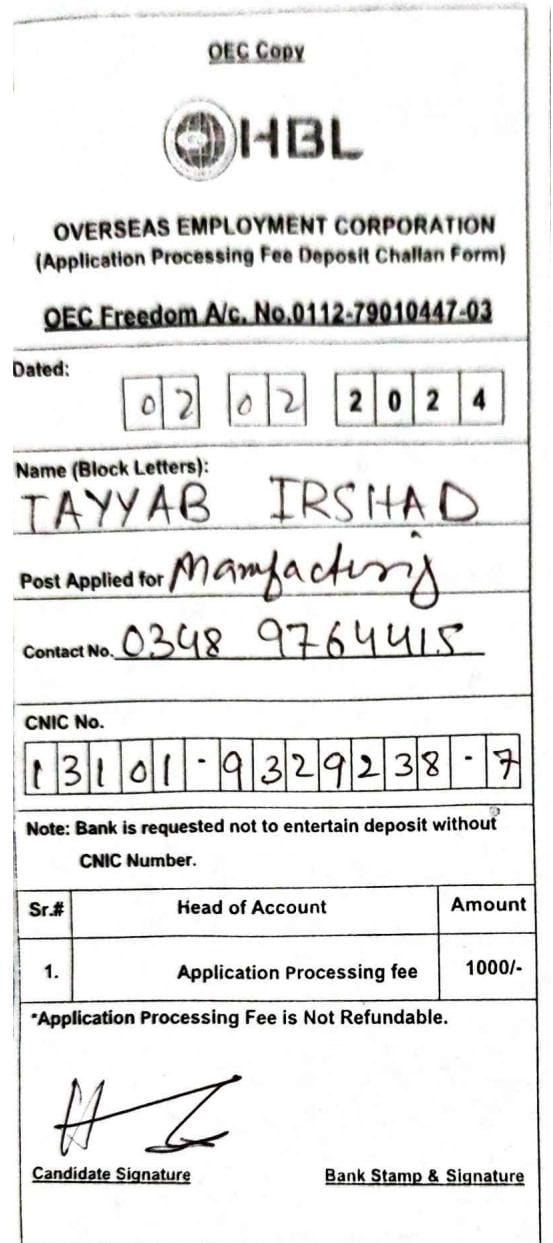 OEC Copy
HBL
OVERSEAS EMPLOYMENT CORPORATION
(Application Processing Fee Deposit Challan Form)
OEC Freedom A/c. No.0112-79010447-03
Dated:
02 02 2024
Name (Block Letters):
TAYYAB IRSHAD
Post Applied for Manfacturing
Contact No. 0348 9764415
CNIC No.
13101-9329238-7
Note: Bank is requested not to entertain deposit without
CNIC Number.
Sr.# Head of Account Amount
1. Application Processing fee 1000/-
*Application Processing Fee is Not Refundable.
Candidate Signature Bank Stamp & Signature